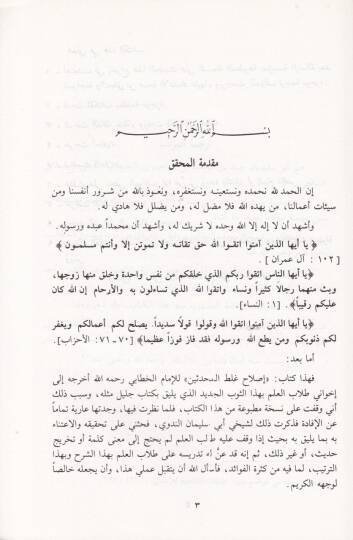 بسم الله الرحمن الرحيم
مقدمة المحقق
إن الحمد لله نحمده ونستعينه ونستغفره، ونعوذ بالله من شرور أنفسنا ومن
سيئات أعمالنا، من يهده الله فلا مضل له، ومن يضلل فلا هادي له.
وأشهد أن لا إله إلا الله وحده لا شريك له، وأشهد أن محمداً عبده ورسوله.
﴿ يا أيها الذين آمنوا اتقوا الله حق تقاته ولا تموتن إلا وأنتم مسلمون ﴾
[ ١٠٢ : آل عمران ] .
﴿يا أيها الناس اتقوا ربكم الذي خلقكم من نفس واحدة وخلق منها زوجها،
وبث منهما رجالاً كثيراً ونساء واتقوا الله الذي تساءلون به والأرحام إن الله كان
عليكم رقيباً﴾. [١: النساء].
﴿يا أيها الذين آمنوا اتقوا الله وقولوا قولاً سديداً. يصلح لكم أعمالكم ويغفر
لكم ذنوبكم ومن يطع الله ورسوله فقد فاز فوزاً عظيما﴾ [٧٠-٧١: الأحزاب].
أما بعد:
فهذا كتاب: «إصلاح غلط المحدثين» للإمام الخطابي رحمه الله أخرجه إلى
إخواني طلاب العلم بهذا الثوب الجديد الذي يليق بكتاب جليل مثله، وسبب ذلك
أني وقفت على نسخة مطبوعة من هذا الكتاب، فلما نظرت فيها، وجدتها عارية تماماً
عن الإفادة فذكرت ذلك لشيخي أبي سليمان الندوي، فحثني على تحقيقه والاعتناء
به بما يليق به بحيث إذا وقف عليه طالب العلم لم يحتج إلى معنى كلمة أو تخريج
حديث، أو غير ذلك، ثم إنه قد عنَّ له تدريسه على طلاب العلم بهذا الشرح وبهذا
الترتيب، لما فيه من كثرة الفوائد، فأسأل الله أن يتقبل عملي هذا، وأن يجعله خالصاً
لوجهه الكريم.
٣